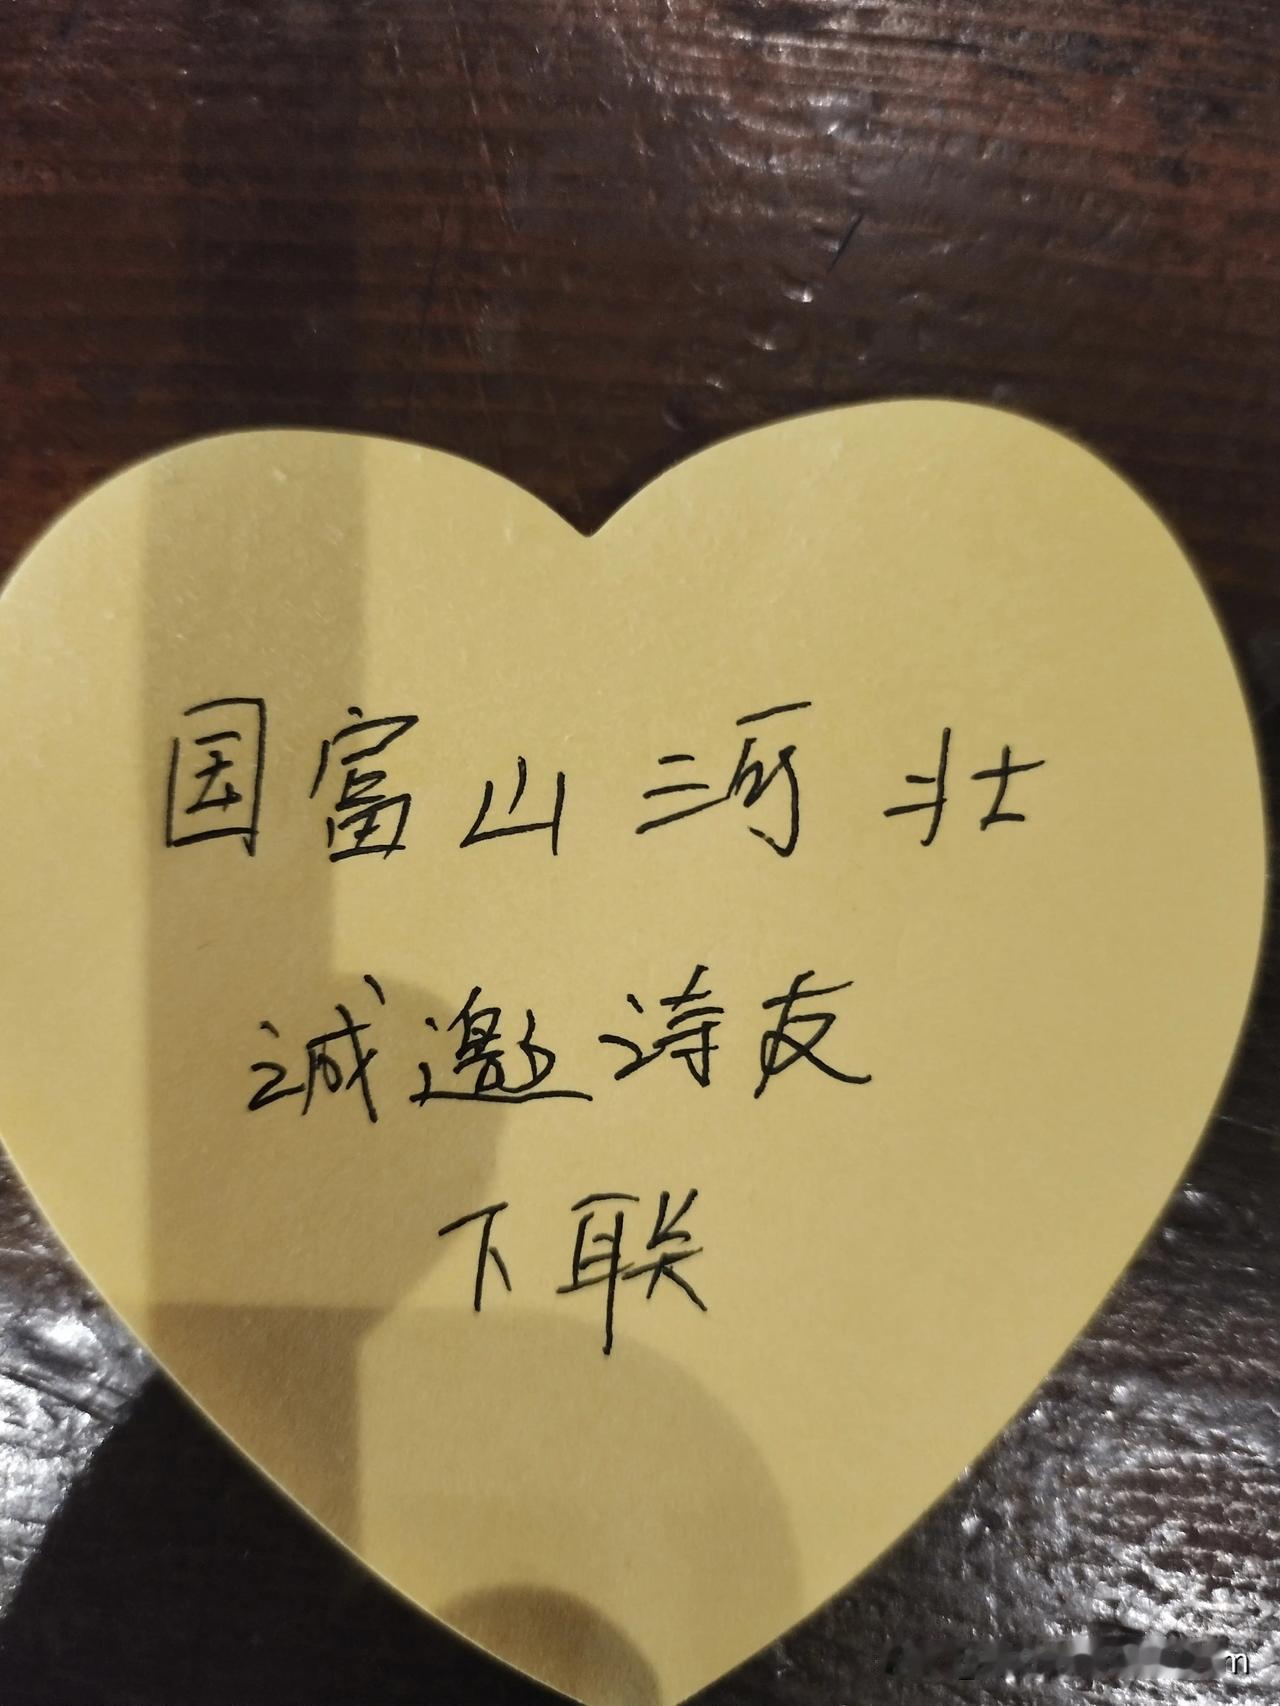 国富山河壮
诚邀诗友
下联